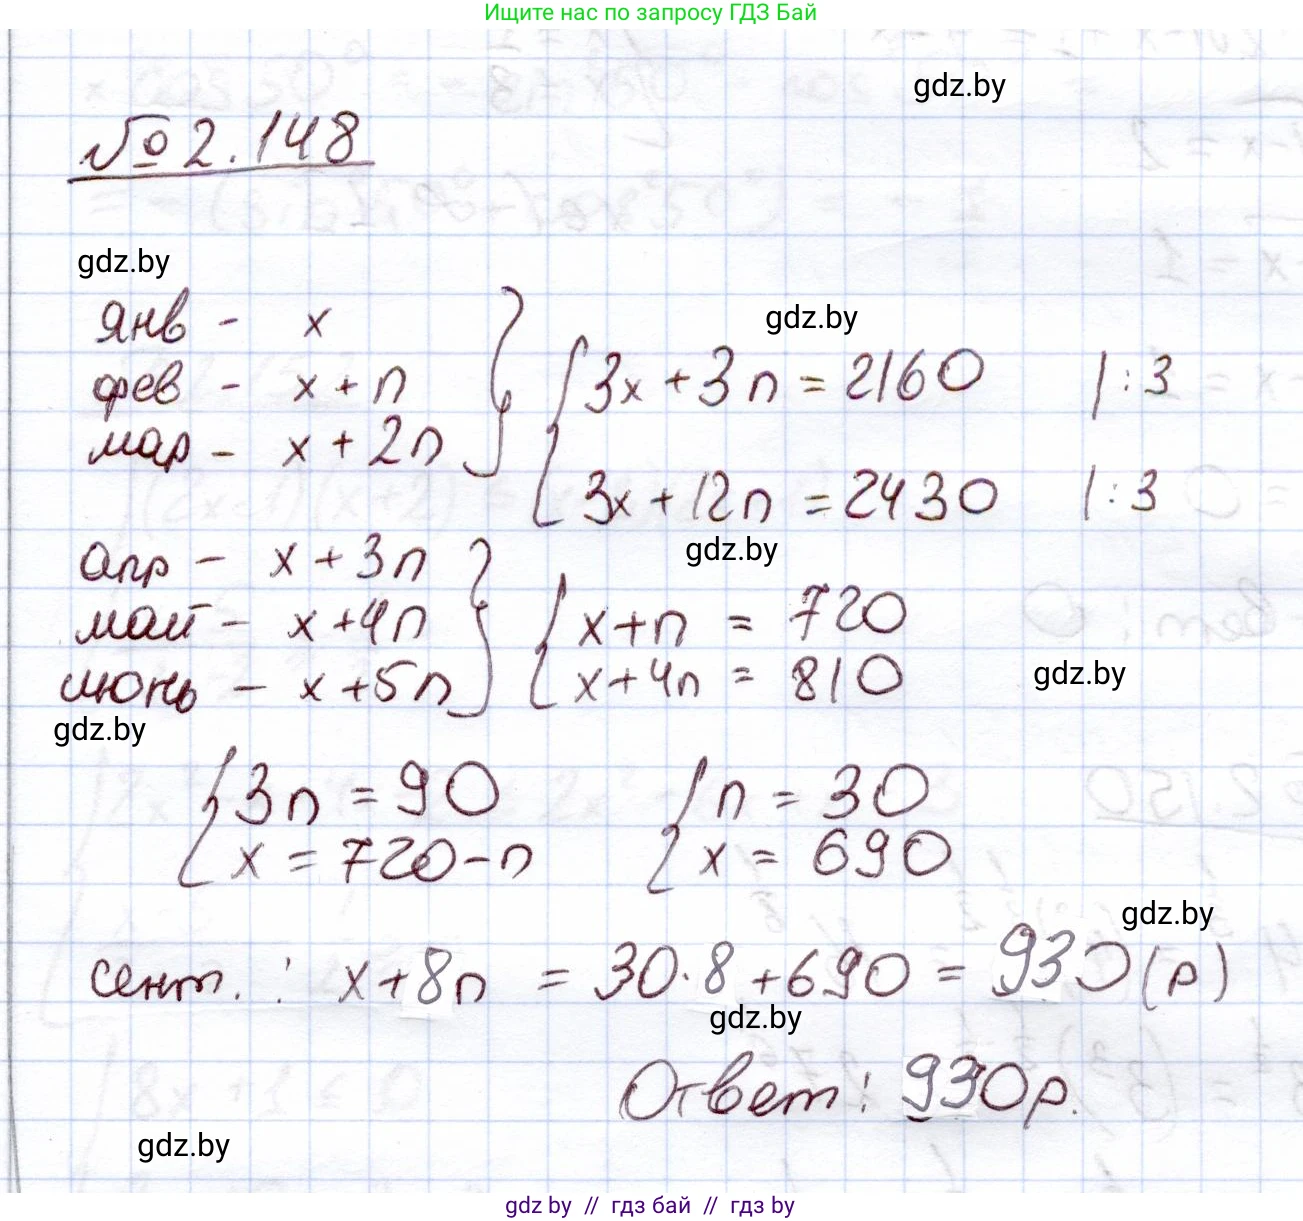 Ищите нас по запросу ГДЗ Бай
gdz.by
№ 2.148
gdz.by
янв - x
фев - x + n
мар - x + 2n
gdz.by
3x + 3n = 2160 | : 3
3x + 12n = 2430 | : 3
gdz.by
апр - x + 3n
май - x + 4n
июнь - x + 5n
x + n = 720
x + 4n = 810
gdz.by
gdz.by
3n = 90
x = 720 - n
n = 30
x = 690
gdz.by
сент. : x + 8n = 30 · 8 + 690 = 930 (р)
gdz.by
Ответ: 930р.
gdz.by
gdz by // гдз бай // гдз by